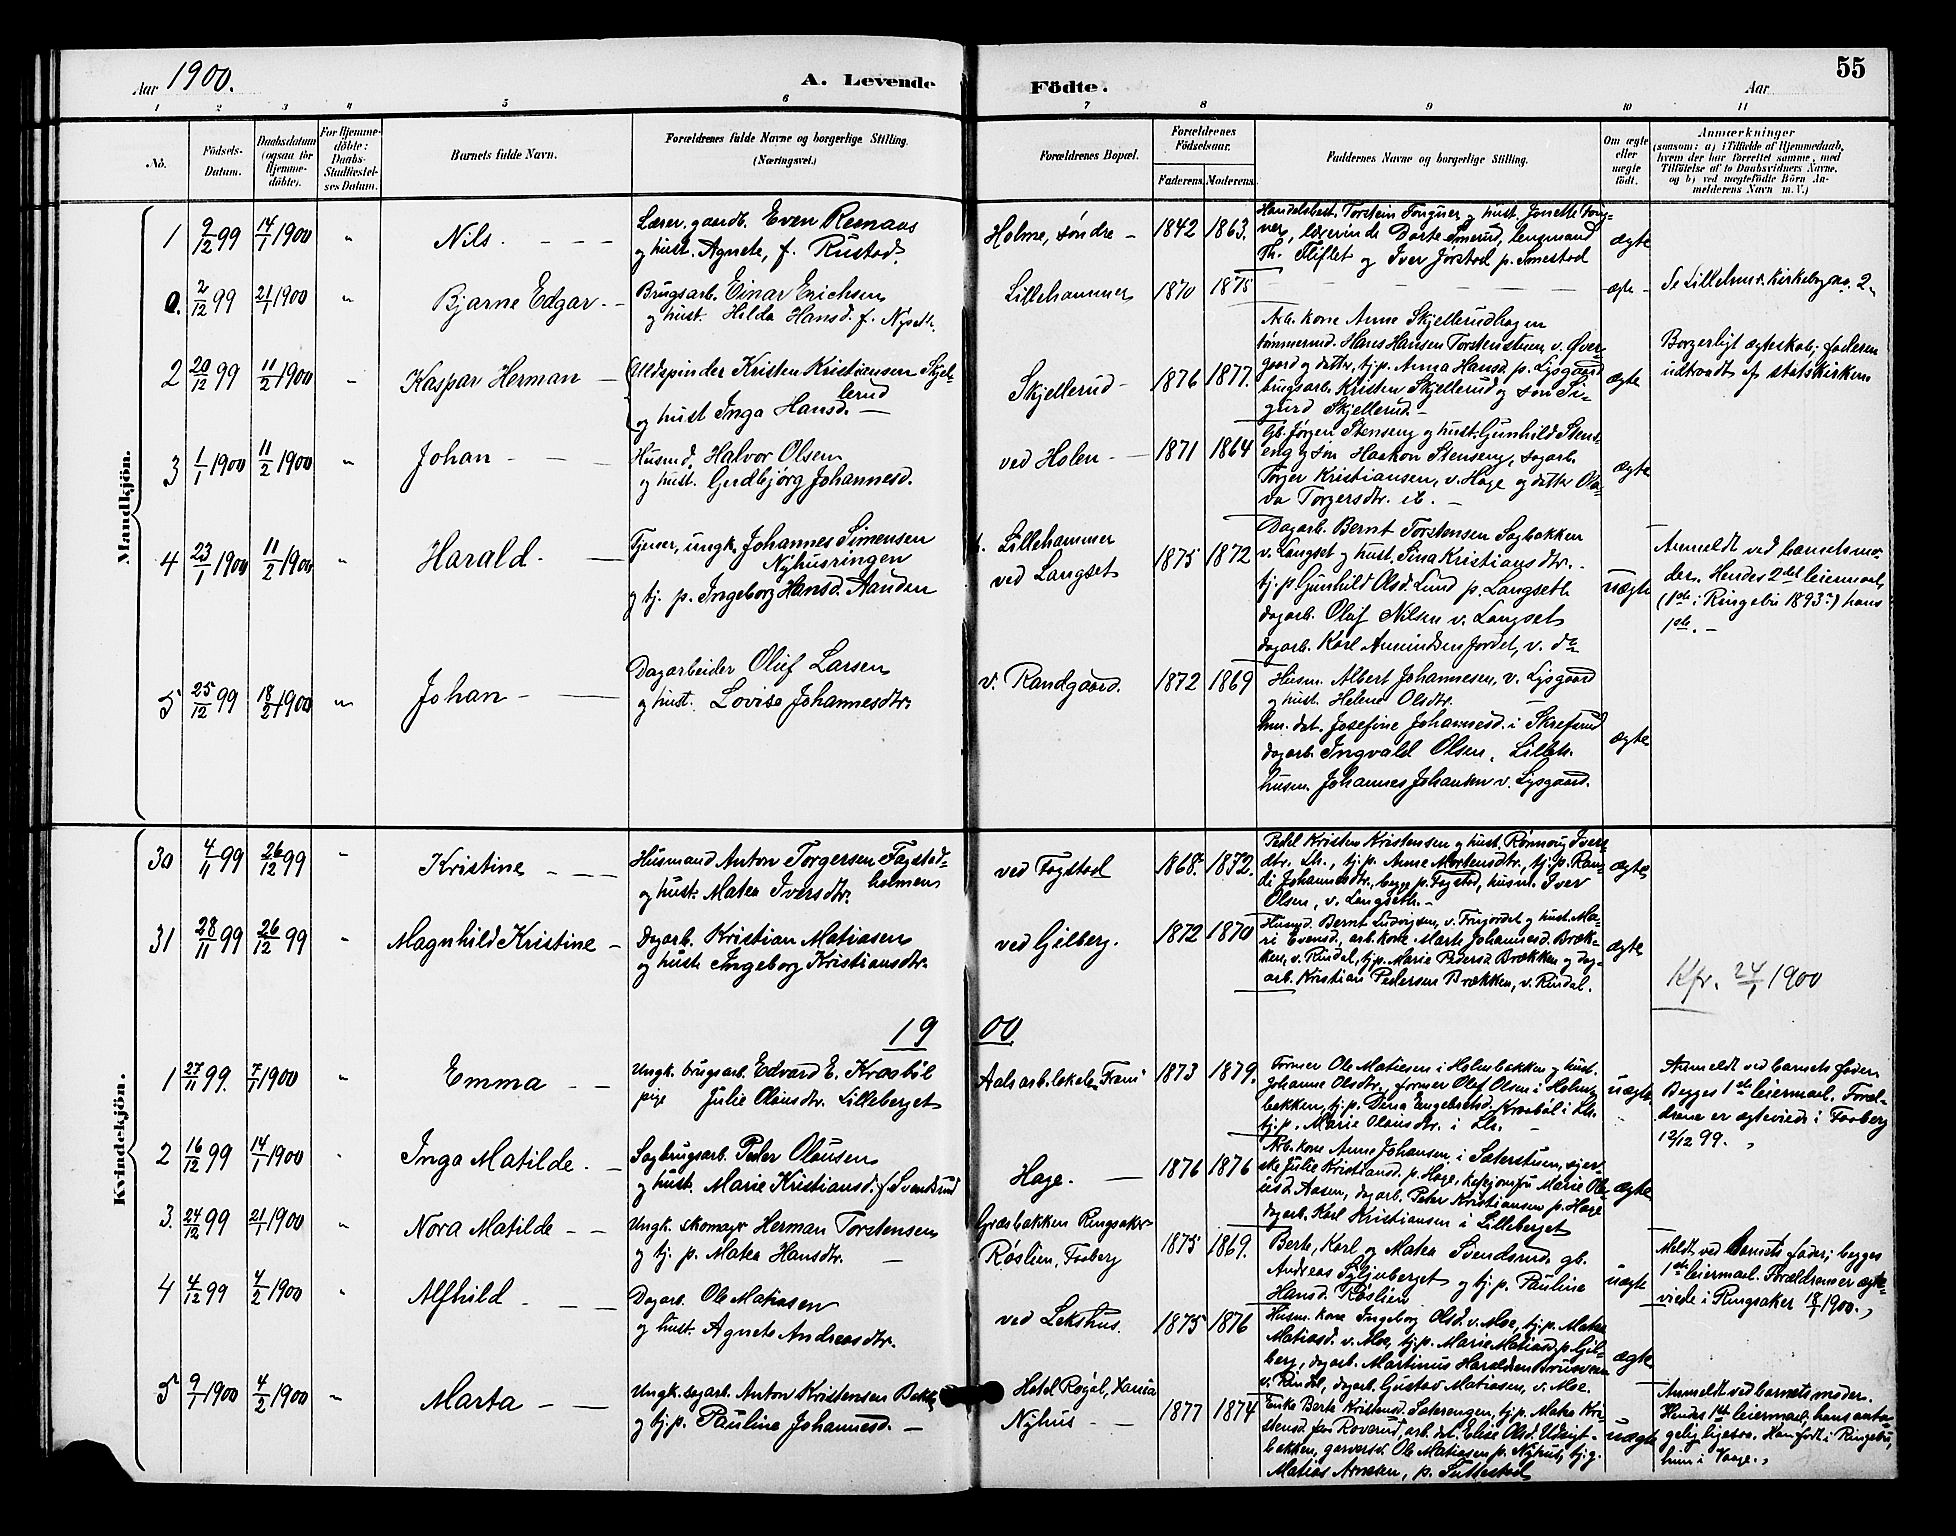 Aar 1900.
A. Levende
Födte.
Aar
55
1 2 3 4 5 6 7 8 9 10 11
No.
Födsels-
Datum.
Daabsdatum
(ogsaa for
Hjemme-
döbte).
For Hjemme-
döbte:
Daabs-
Stadfæstel-
ses Datum.
Barnets fulde Navn.
Forældrenes fulde Navne og borgerlige Stilling.
(Næringsvei.)
Forældrenes Bopæl.
Forældrenes
Födselsaar.
Faderens. Moderens.
Faddernes Navne og borgerlige Stilling.
Om ægte
eller
uægte
födt.
Anmærkninger
(saasom: a) i Tilfælde af Hjemmedaab,
hvem der har forrettet samme, med
Tilföielse af to Daabsvidners Navne,
og b) ved uægtefödte Börn An-
melderens Navn m. V.)
Mandkjön.
1 2/12 99 14/1 1900 " Nils.
Lærer, gaardb. Even
og hust. Agnete, f. Rustad.
Holme, søndre 1842 1863.
Handelsbest. Torstein Fougner og hust. Jonette Foug-
ner, lærerinde Dorte Smerud, lensmand
Th. Fliflet og Iver Jørstad p. Smestad
ægte
0. 2/12 99 21/1 1900 " Bjarne Edgar
Brugsarb. Einar Erichsen
og hust. Hilda Hansd. f. Nyseth.
Lillehammer 1870 1875 ægte
Se Lilleham. kirkebog no. 2.
2 20/12 99 11/2 1900 " Kaspar Herman
Uldspinder Kristen Kristiansen Skjel-
lerud
og hust Inga Hansd.
Skjellerud 1876 1877.
Arb. kone Anne Skjellerudhagen
tømmermd. Hans Hansen Torstenstuen v. Øver-
gaard og datter, tj. p. Anna Hansd. p. Lysgaard
brugsarb. Kristen Skjellerud og søn Si-
gurd Skjellerud.
ægte
Borgerligt ægteskab; faderen
udtraadt af statskirken
3 1/1 1900 11/2 1900 " Johan
Husmd. Halvor Olsen
og hust. Gudbjørg Johannesd.
ved Holen 1871 1864
Gb. Jørgen Stenseng og hust. Gunhild Stens-
eng og søn Haakon Stenseng, dagarb.
Torger Kristiansen, v. Hage og datter Ola-
va Torgersdtr. ib.
ægte
4 23/1 1900 11/2 1900 " Harald.
Tjener, ungk. Johannes Simensen
Nyhusringen
og tj. p. Ingeborg Hansd. Aanden
Lillehammer
ved Langset 1875 1872
Dagarb. Bernt Torstensen Sagbakken
v. Langset og hust. Sina Kristiansdtr.
tj. p Gunhild Olsd. Lund p. Langseth
dagarb. Olaf Nilsen v. Langset
dagarb. Karl Amundsen Jordet, v. do
uægte
Anmeldt ved barnets mo-
der. Hendes 2det leiermaal
(1ste i Ringebu 1893) hans
1ste.
5 25/12 99 18/2 1900 " Johan
Dagarbeider Oluf Larsen
og hust. Lovise Johannesdtr.
v. Randgaard. 1872 1869
Husm. Albert Johannesen, v. Lysgaard
og hust. Helene Olsdtr.
Hus. dat. Josefine Johannesd. i Skrefsrud
dagarb. Ingvald Olsen, Lilleh.
husm. Johannes Johansen v. Lysgaard.
ægte
Kvindekjön.
30 4/11 99 26/12 99 " Kristine
Husmand Anton Torgersen Fagstad-
holmen
og hust. Matea Iversdtr.
ved Fagstad 1868. 1872.
Pedel Kristen Kristensen og hust. Rønnoug Ivers-
dtr. Lh., tj. p. Anne Mortensdtr., tj. p. Ran-
di Johannesdtr., begge p. Fagstad, husm. Iver
Olsen, v. Langseth.
ægte
31 28/11 99 26/12 99 " Magnhild Kristine
Dagarb. Kristian Matiasen
og hust. Ingeborg Kristiansdtr.
ved Gilberg. 1872 1870
Husmd. Bernt Ludvigsen, v. Trujordet og hust. Ma-
ri Evensd., arb. kone Marte Johannesd. Bræk-
ken, v. Rindal, tj. p. Marie Pedersd. Brækken og dag-
arb. Kristian Pedersen Brækken, v. Rindal.
ægte
Kfr. 24/1 1900
19 00
1 27/11 99. 7/1 1900 " Emma
Ungk. brugsarb. Edvard E. Kraabøl
pige Julie Olausdtr. Lilleberget
Aals arb. lokale, Fram 1873 1879.
Former Ole Matiesen i Holmbakken og hust.
Johanne Olsdtr., former Olaf Olsen i Holm-
bakken, tj. p. Dina Engebretsd. Kraabøl i Lh.
tj. p. Marie Olausdtr. i Lh.
uægte
Anmeldt ved barnets fader.
Begges 1ste leiermaal. Foræl-
drene er ægteviede i Faaberg
12/12 99.
2 16/12 99 14/1 1900 Inga Matilde.
Sagbrugsarb. Peder Olausen
og hust. Marie Kristiansd. f. Svendsrud
Hage. 1876 1876
Arb. kone Anne Johansen i Saterstuen, syer-
ske Julie Kristiansd. p. Hage, Marie Ole-
Aasen, dagarb. Peter Kristiansen p. Hage
dagarb. Karl Kristiansen i Lilleberget
ægte
3. 24/12 99 21/1 1900 " Nora Matilde
Ungk. skomager Herman Torstensen
og tj. p. Matea Hansdtr.
Græsbakken Ringsaker
Røslien, Faaberg 1875 1869.
Berte, Karl og Matea Svendsrud, gb.
Andreas Sljuberget og tj. p. Pauline
Hansd. Røslien
uægte
Meldt ved barnets fader; begges
1ste leiermaal. Forældrene er ægte-
viede i Ringsaker 18/1 1900.
4 4/12 99 4/2 1900 " Alfhild
Dagarb. Ole Matiasen
og hust. Agnete Andreasdtr.
ved Lekshus. 1875 1876
Husm. kone Ingeborg Olsd. v. Moe, tj. p. Matea
Matiasd. v. Moe, tj. p. Marie Matiasd. p. Gil-
berg, dagarb. Martinus Haraldsen Brusveen
v. Rindal, dagarb. Gustav Matiasen, v. Moe.
ægte
5 9/1 1900 4/2 1900 " Marta
Ungk. sagarb. Anton Kristensen Bakke
og tj. p. Pauline Johannesd.
Hotel Royal, Hamar
Nyhus 1877 1874
Enke Berte Kristensd. Saterengen, tj. p. Matea Kri-
stensd. fra Roverud, arb. dat. Elise Olsd. Udsigt-
bakken, garversv. Ole Matiasen p. Nyhus, tj. g.
Matias Arnesen, p. Suttestad
uægte
Anmeldt ved barnets moder.
Hendes 1ste leiermaal; hans anta-
gelig ligesaa. Han født i Ringebu,
hun i Vaage.